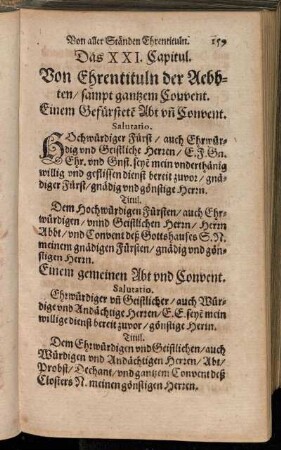 Von aller Ständen Ehrentituln. 159
Das XXI. Capitul.
Von Ehrentituln der Aebb-
ten/ sampt gantzem Convent.
Einem Gefürstetē Abt vñ Convent.
Salutatio.
Hochwürdiger Fürst/ auch Ehrwür-
dig vnd Geistliche Herren/ E. F. Gn.
Ehr. vnd Gnst. seyē mein vnderthänig
willig vnd geflissen dienst bereit zuvor/ gnä-
diger Fürst/ gnädig vnd gönstige Herrn.
Titul.
Dem Hochwürdigen Fürsten/ auch Ehr-
würdigen/ vnnd Geistlichen Herrn/ Herrn
Abbt/ vnd Convent deß Gottshauses S. N.
meinem gnädigen Fürsten/ gnädig vnd gön-
stigen Herrn.
Einem gemeinen Abt vnd Convent.
Salutatio.
Ehrwürdiger vñ Geistlicher/ auch Wür-
dige vnd Andächtige Herren/ E. E. seyē mein
willige dienst bereit zuvor/ gönstige Herrn.
Titul.
Dem Ehrwürdigen vnd Geistlichen/ auch
Würdigen vnd Andächtigen Herren/ Abt/
Probst/ Dechant/ vnd gantzem Convent deß
Closters N. meinen gönstigen Herren.